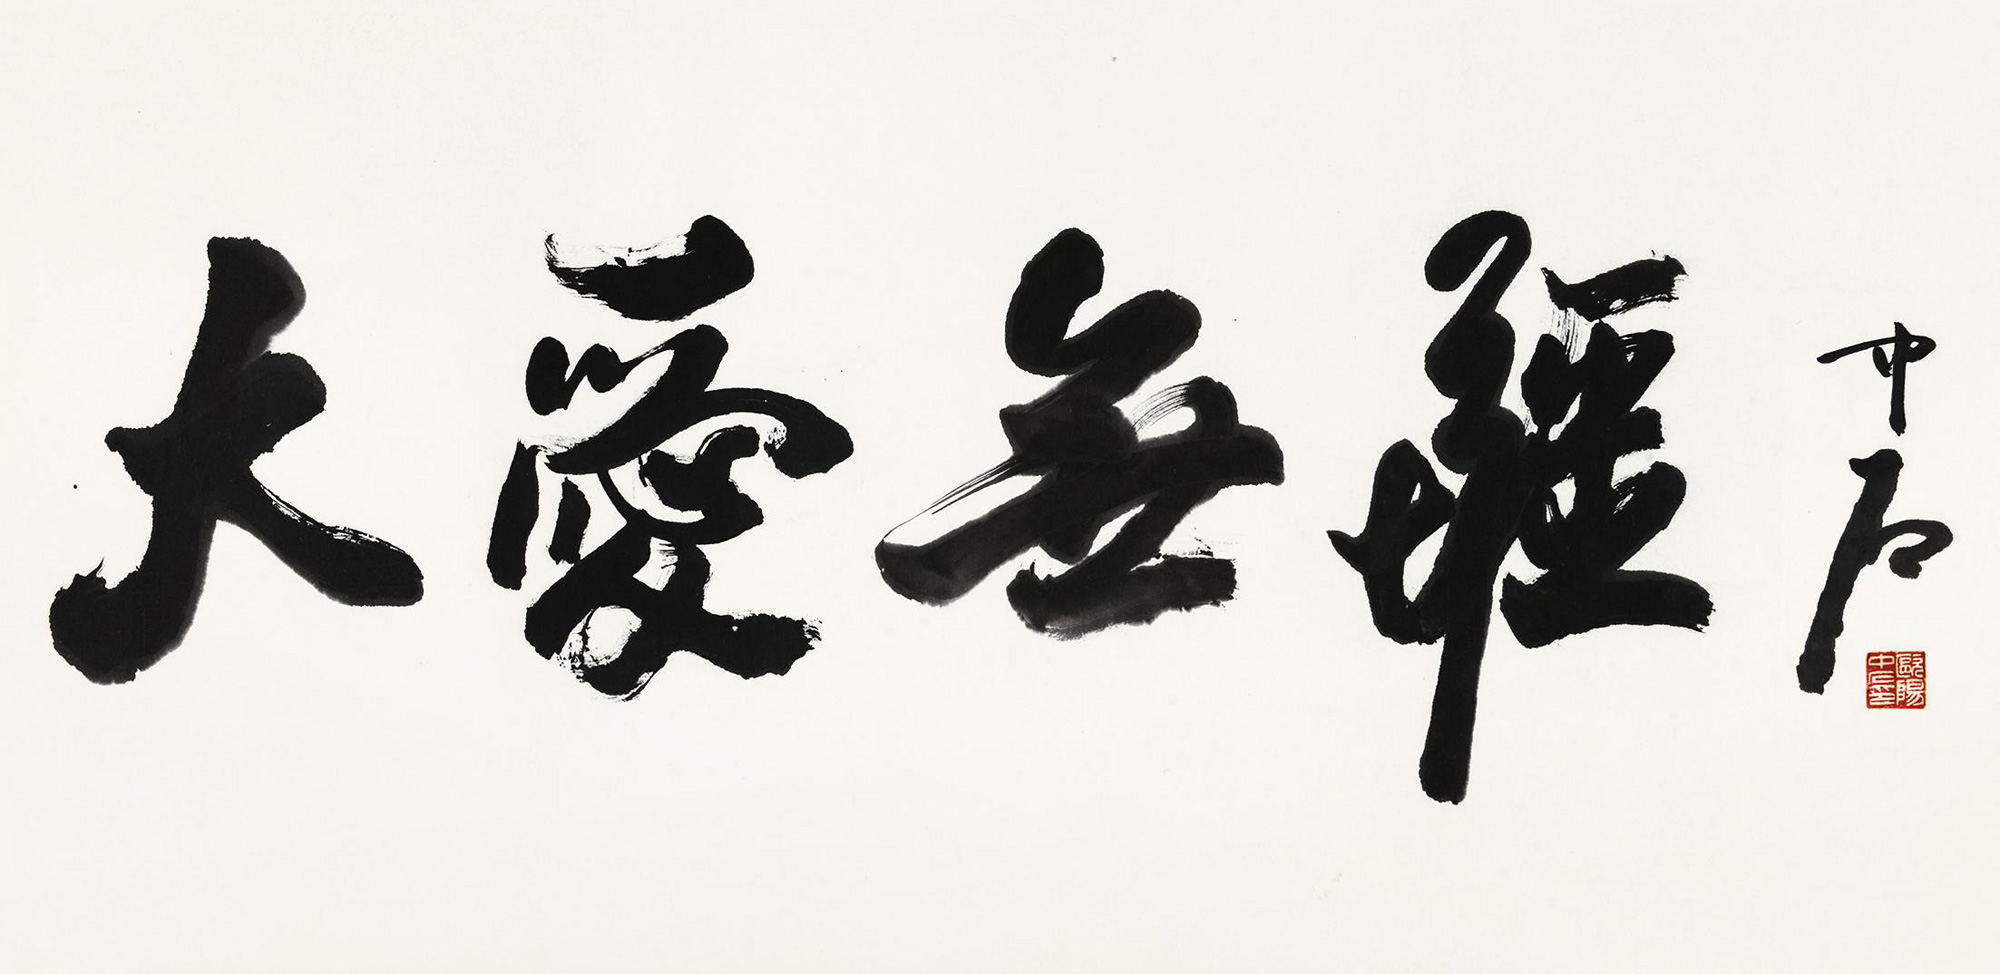 大愛無疆
中石
歐陽中石印